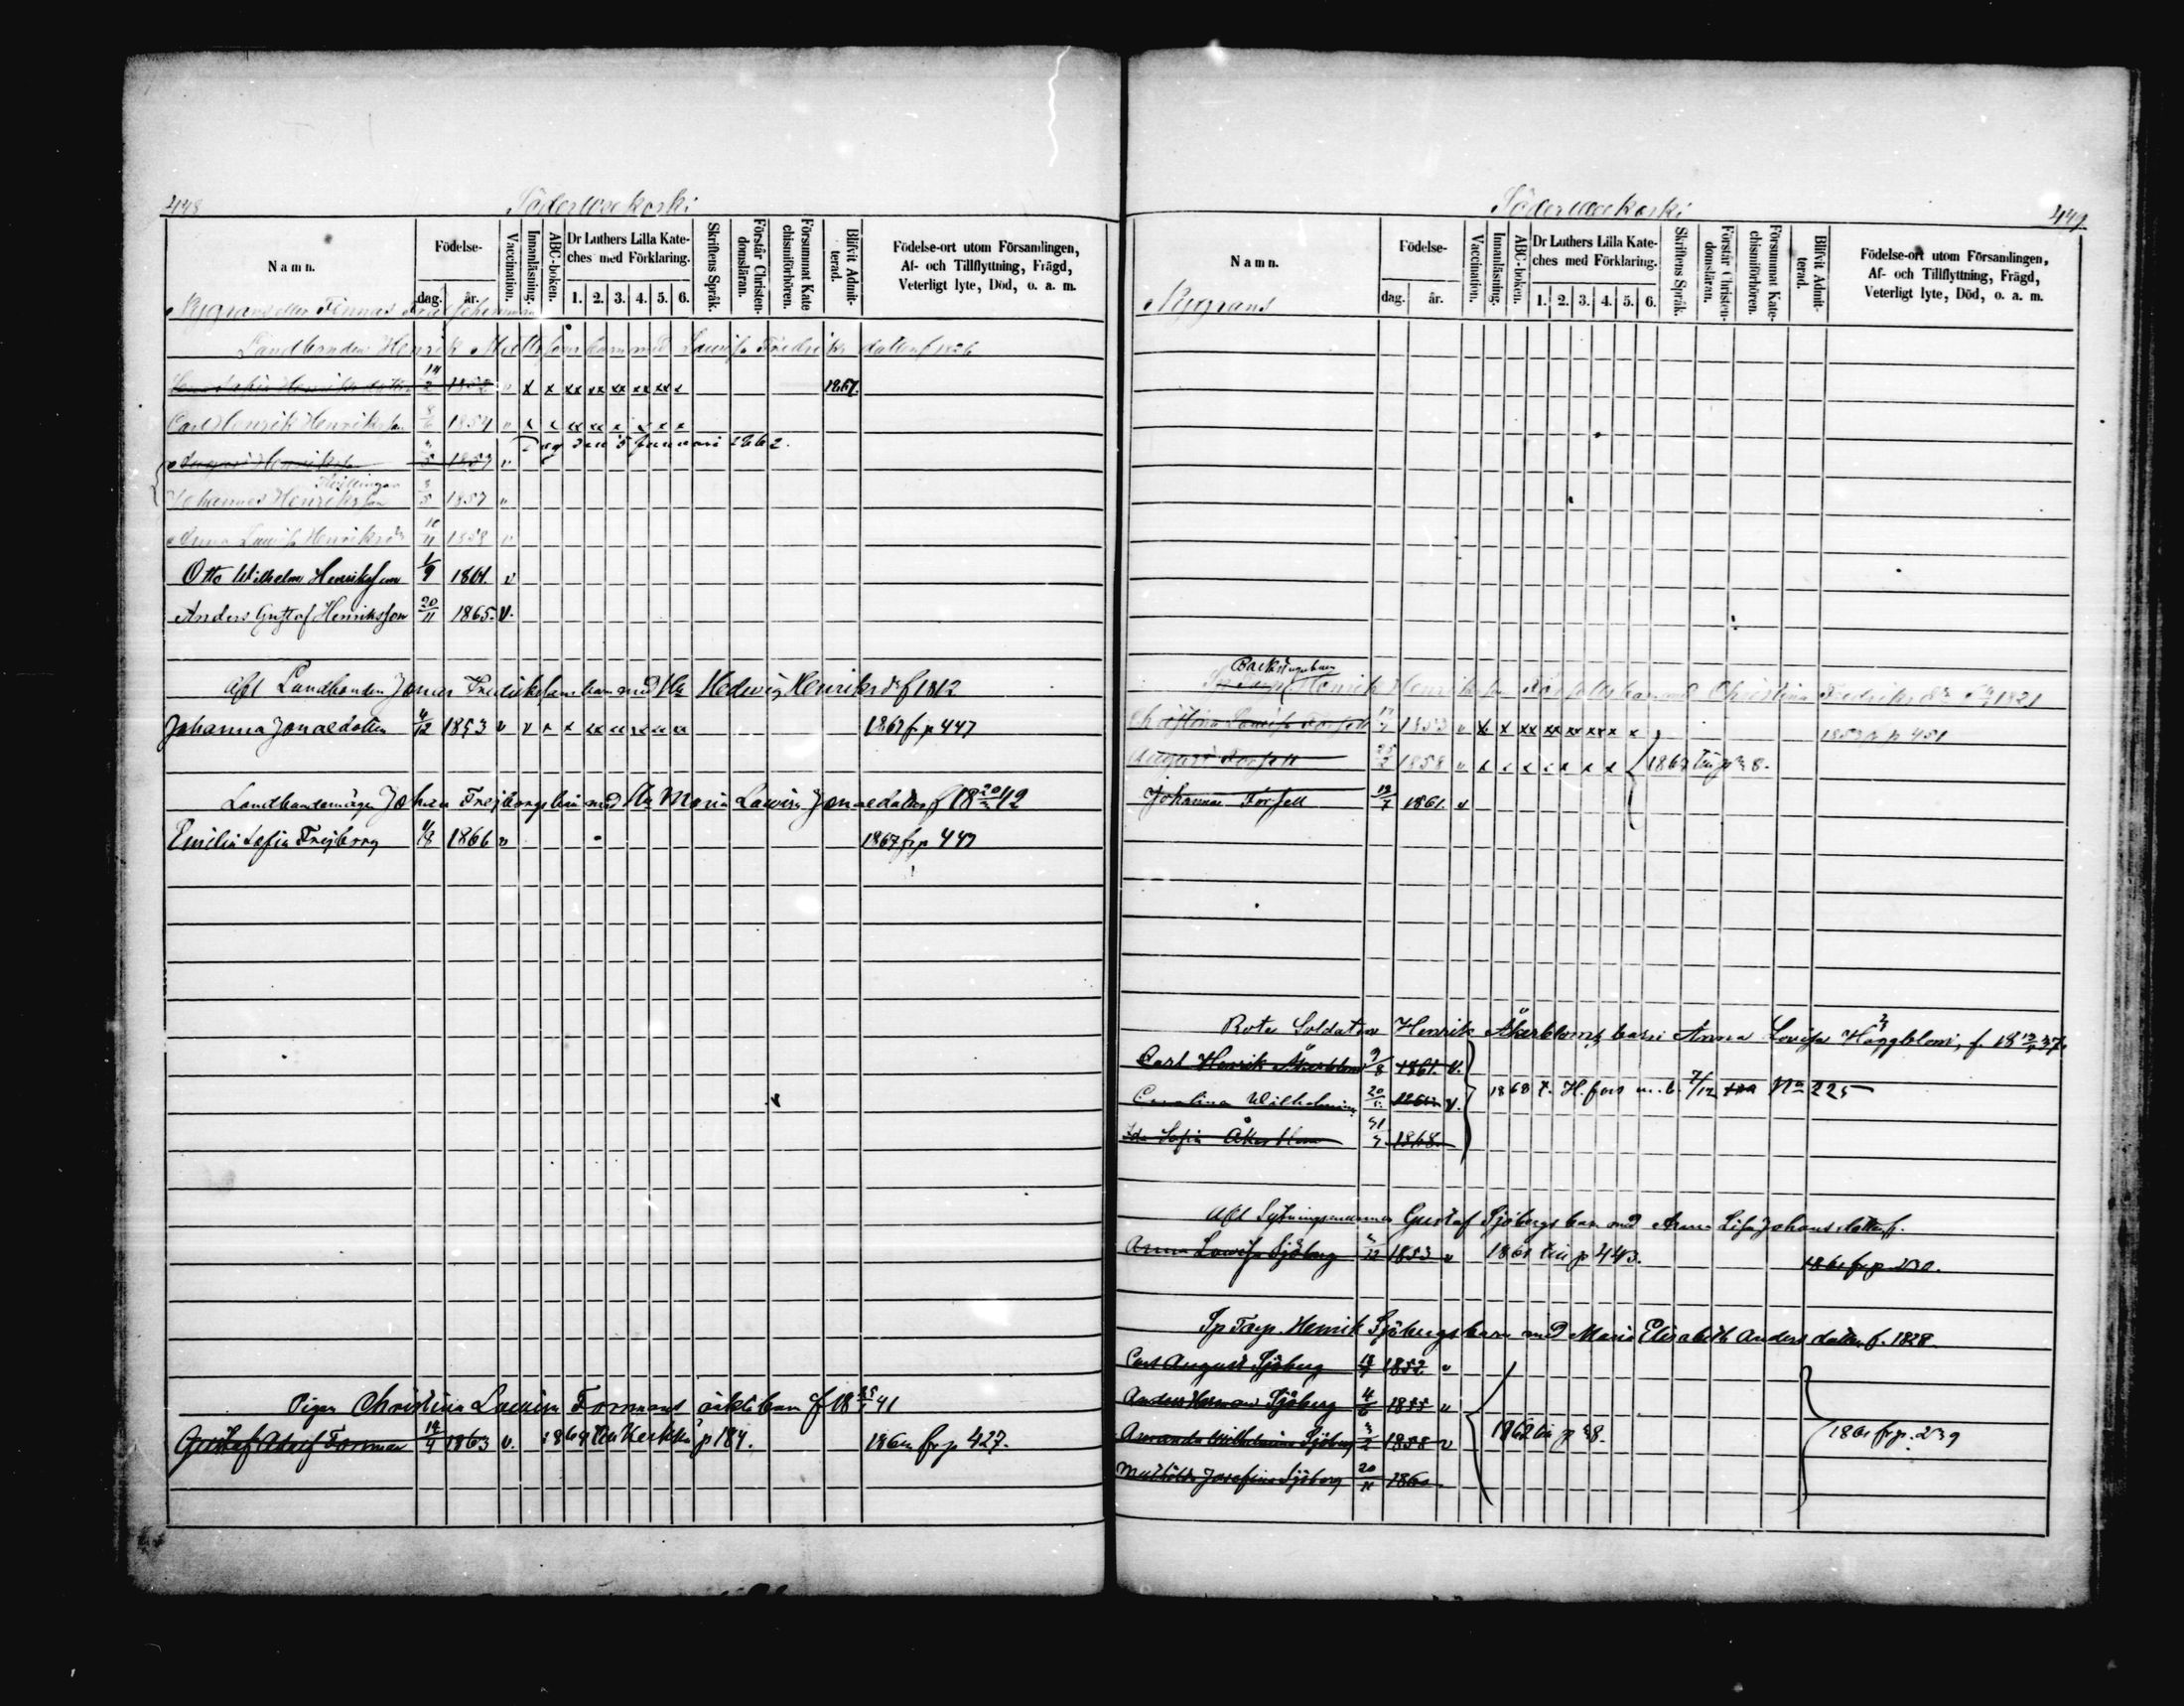 448
Söderweckoski
Namn.
Födelse-
dag. år.
Vaccination.
Innanläsning.
ABC-boken.
Dr Luthers Lilla Kate-
ches med Förklaring.
1. 2. 3. 4. 5. 6.
Skriftens Språk.
Förstår Christen-
domsläran.
Försummat Kate
chismiförhören.
Blifvit Admit-
terad.
Födelse-ort utom Församlingen,
Af- och Tillflyttning, Frägd,
Veterligt lyte, Död, o. a. m.
Nygrans eller Finnas
Landbonden Henrik barn med Lovisa Fredriks dotter f 1826
Sofia Henriksdotter 14/2 1852 v x x xx xx xx xx xx x 1867.
Carl Henrik Henriksson 8/6 1854 v x x xx xx x x x x
August Henriksson 3/5 1857 v Dog den 5 Januari 1862.
Johannes Henriksson 3/5 1857 v
Anna Lovisa Henriksdr 10/11 1858 v
Otto Wilhelm Henriksson 1/9 1861. v
Anders Gustaf Henriksson 20/11 1865. v.
Afl Landbonden Jonas Fredrikssons barn med Hedvig Henriksdr f 1812
Johanna Jonaedotter 4/12 1853 v v x x xx xx xx xx xx 1867 fr p 447
Landbondemågen Johan Frejborgs barn med Maria Lovisa Jonaedotter f 18 20/ 42
Emilia Sofia Frejborg 4/8 1866 v 1867 fr p 447
Pigan Christina Lovisa Formans oäkta barn f 18 25/ 41
Gustaf Adolf Forman 14/4 1863 v. 1869 till Kerkkö p 184. fr p 427.
Söderweckoski
449
Namn.
Födelse-
dag. år.
Vaccination.
Innanläsning.
ABC-boken.
Dr Luthers Lilla Kate-
ches med Förklaring.
1. 2. 3. 4. 5. 6.
Skriftens Språk.
Förstår Christen-
domsläran.
Försummat Kate-
chismiförhören.
Blifvit Admit-
terad.
Födelse-ort utom Församlingen,
Af- och Tillflyttning, Frägd,
Veterligt lyte, Död, o. a. m.
Nygrans
Backstuguhans
Henrik Henriksson Forsells barn med Christina Fredriks dr 1821
Christina Lovisa Forsell 1853 v x x xx xx xx xx x x p 451
August Forsell 25/2 1858 v x x x x x x x till p 38.
Johannes Forsell 19/7 1861. v
Rote Soldaten Henrik Åkerbloms barn Anna Lovisa Häggblom, f. 18 37.
Carl Henrik Åkerblom 9/8 1861. v.
Carolina Wilhelmina 20/ v. 1868 t. H.fors m. b. 7/12 No 225
Ida Sofia Åkerblom 31/7 1868
Afl Sytningsmannen Gustaf Sjöbergs barn med Anna Lisa Johans dotter f.
Anna Lovisa Sjöberg 1853 v 1861 till p 443. 1861 fr p 230.
Sp Torp. Henrik Sjöbergs barn med Maria Elisabeth Anders dotter f. 1828.
Carl August Sjöberg 1852 v
Anders Herman Sjöberg 4/6 1855 v
Amanda Wilhelmina Sjöberg 3/2 1858 v 1862 till p 38. 1861 fr p. 239
Mathilda Josefina Sjöberg 20/ 1860